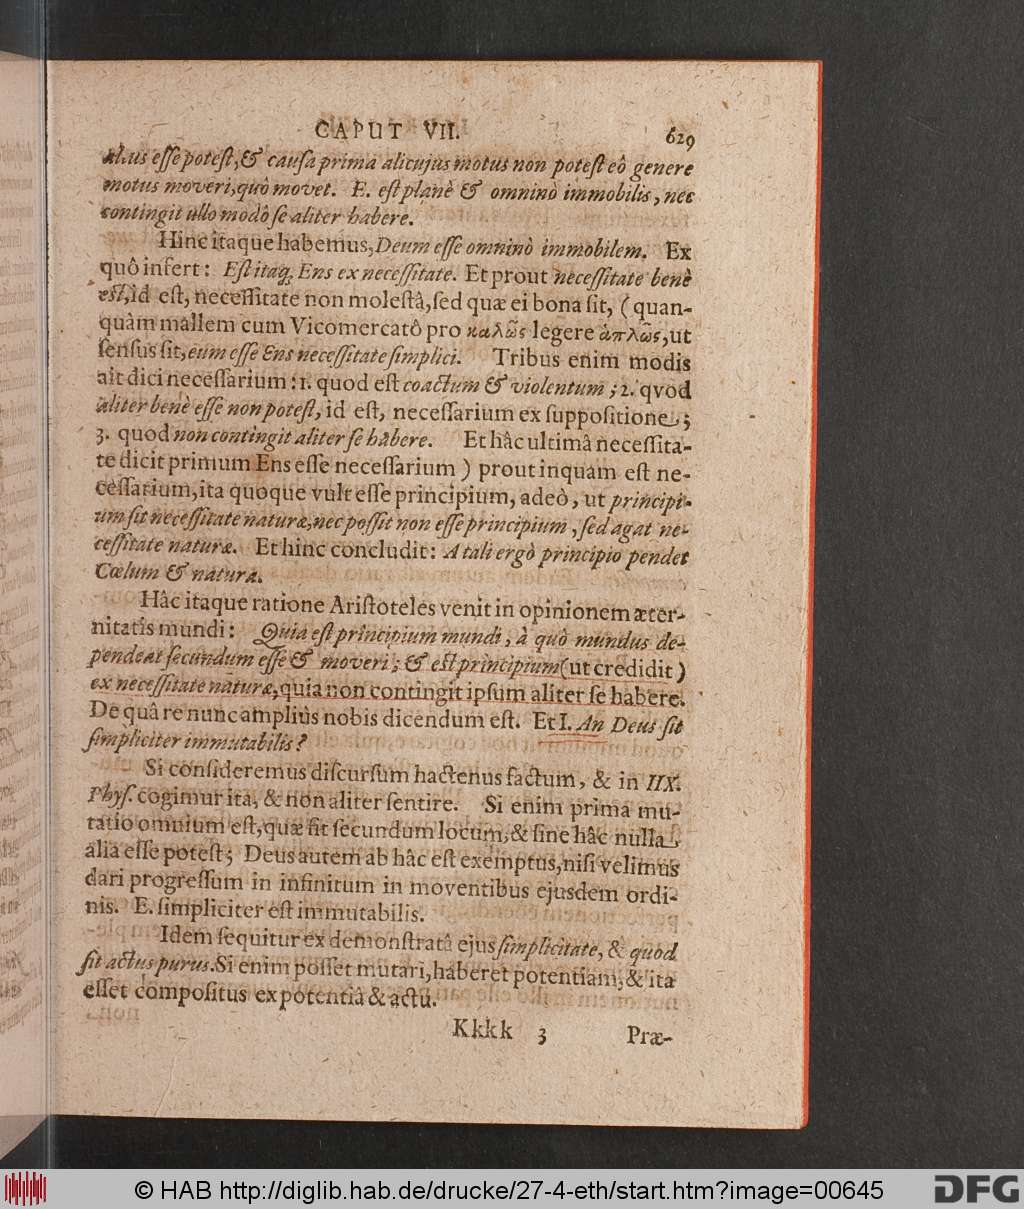 CAPUT VII. 629
alius esse potest, & causa prima alicujus motus non potest eô genere
motus moveri, quô movet. E. est planè & omninò immobilis, nec
contingit ullo modô se aliter habere.
Hinc itaque habemus, Deum esse omninò immobilem. Ex
quô infert: Est itaq; Ens ex necessitate. Et prout necessitate benè
est, id est, necessitate non molestâ, sed quæ ei bona sit, (quan-
quàm mallem cum Vicomercatô pro καλῶς legere ἁπλῶς, ut
sensus sit, eum esse Ens necessitate simplici. Tribus enim modis
ait dici necessarium: 1. quod est coactum & violentum; 2. qvod
aliter benè esse non potest, id est, necessarium ex suppositione;
3. quod non contingit aliter se habere. Et hâc ultimâ necessita-
te dicit primum Ens esse necessarium) prout inquam est ne-
cessarium, ita quoque vult esse principium, adeò, ut principi-
um sit necessitate naturæ, nec possit non esse principium, sed agat ne-
cessitate naturæ. Et hinc concludit: A tali ergò principio pendet
Cœlum & natura.
Hâc itaque ratione Aristoteles venit in opinionem æter-
nitatis mundi: Quia est principium mundi, à quô mundus de-
pendeat secundum esse & moveri; & est principium (ut credidit)
ex necessitate naturæ, quia non contingit ipsum aliter se habere.
De quâ re nunc ampliùs nobis dicendum est. Et I. An Deus sit
simpliciter immutabilis?
Si consideremus discursum hactenus factum, & in IIX.
Phys. cogimur ita, & non aliter sentire. Si enim prima mu-
tatio omnium est, quæ fit secundum locum, & sine hâc nulla
alia esse potest; Deus autem ab hâc est exemptus, nisi velimus
dari progressum in infinitum in moventibus ejusdem ordi-
nis. E. simpliciter est immutabilis.
Idem sequitur ex demonstratâ ejus simplicitate, & quod
sit actus purus. Si enim posset mutari, haberet potentiam, & ita
esset compositus ex potentiâ & actu.
Kkkk 3 Præ-
© HAB http://diglib.hab.de/drucke/27-4-eth/start.htm?image=00645
DFG